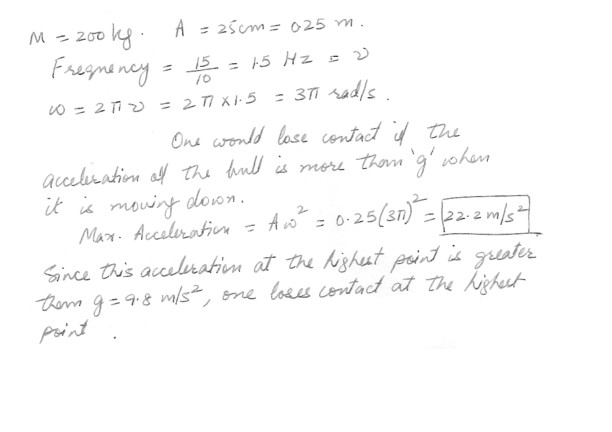 M = 200 kg. A = 25cm = 0.25 m.
Frequency = 15/10 = 1.5 Hz = ν
ω = 2πν = 2π × 1.5 = 3π rad/s.
One would lose contact if the
acceleration of the bull is more than 'g' when
it is moving down.
Max. Acceleration = Aω² = 0.25(3π)² = 22.2 m/s²
Since this acceleration at the highest point is greater
than g = 9.8 m/s², one loses contact at the highest
point.